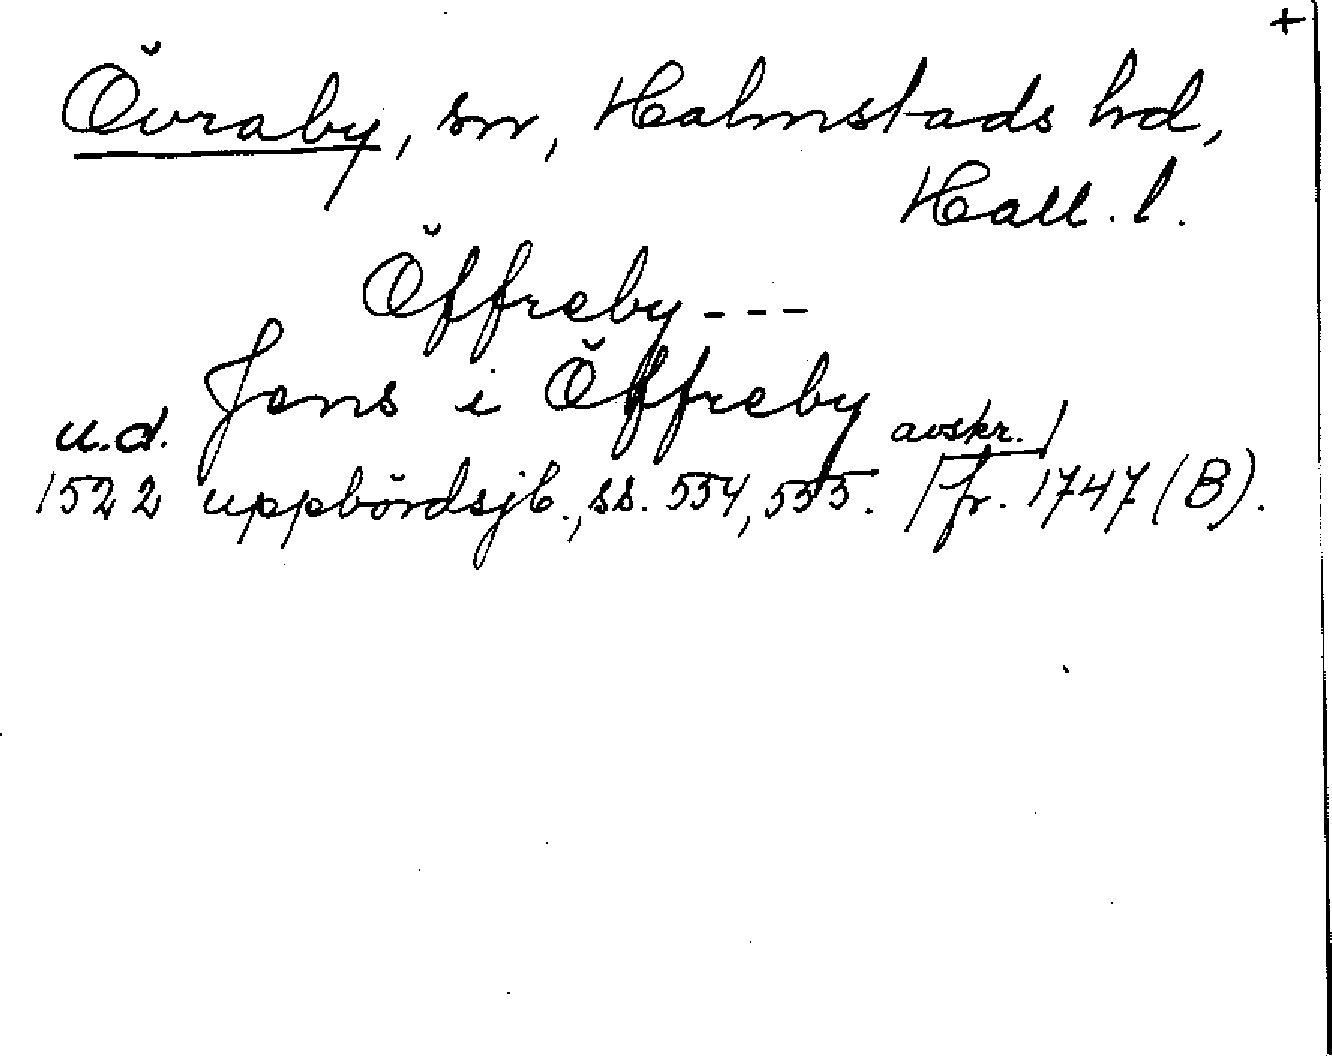 +
Övraby, sn, Halmstads hd,
Hall. l.
Öffreby - - -
Jens i Öffreby
u.d. avskr.
1522 uppbördsjb., ss. 554, 555. fr. 1747 (B).